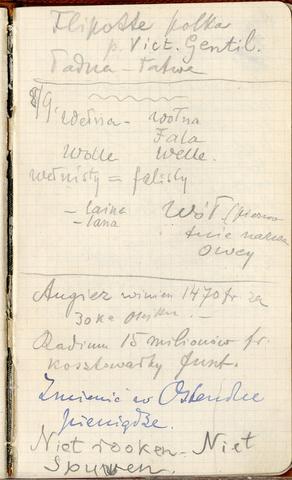 polka
p. Vict. Gentil.
Ładna - łatwa
8/9. Wełna - wołna
Fala
Wolle Welle.
wełnisty = falisty
- laina
- lana
Wół (pierwo
tnie nazwa
owcy
Angiez winien 1470 fr. za
30 ko
Radium 15 milionów fr.
kosztowałby funt.
Zmienić w Ostendzie
pieniądze.
Niet rooken - Niet
Spuwen.